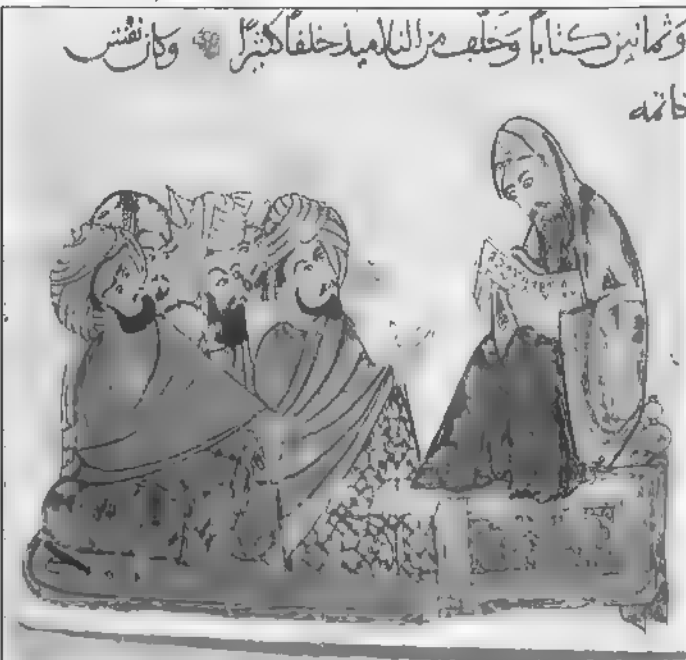 وثمانين كتاباً وَخَلّف من التلاميذ خلفاً كثيرًا وكان نقش
خاتمه